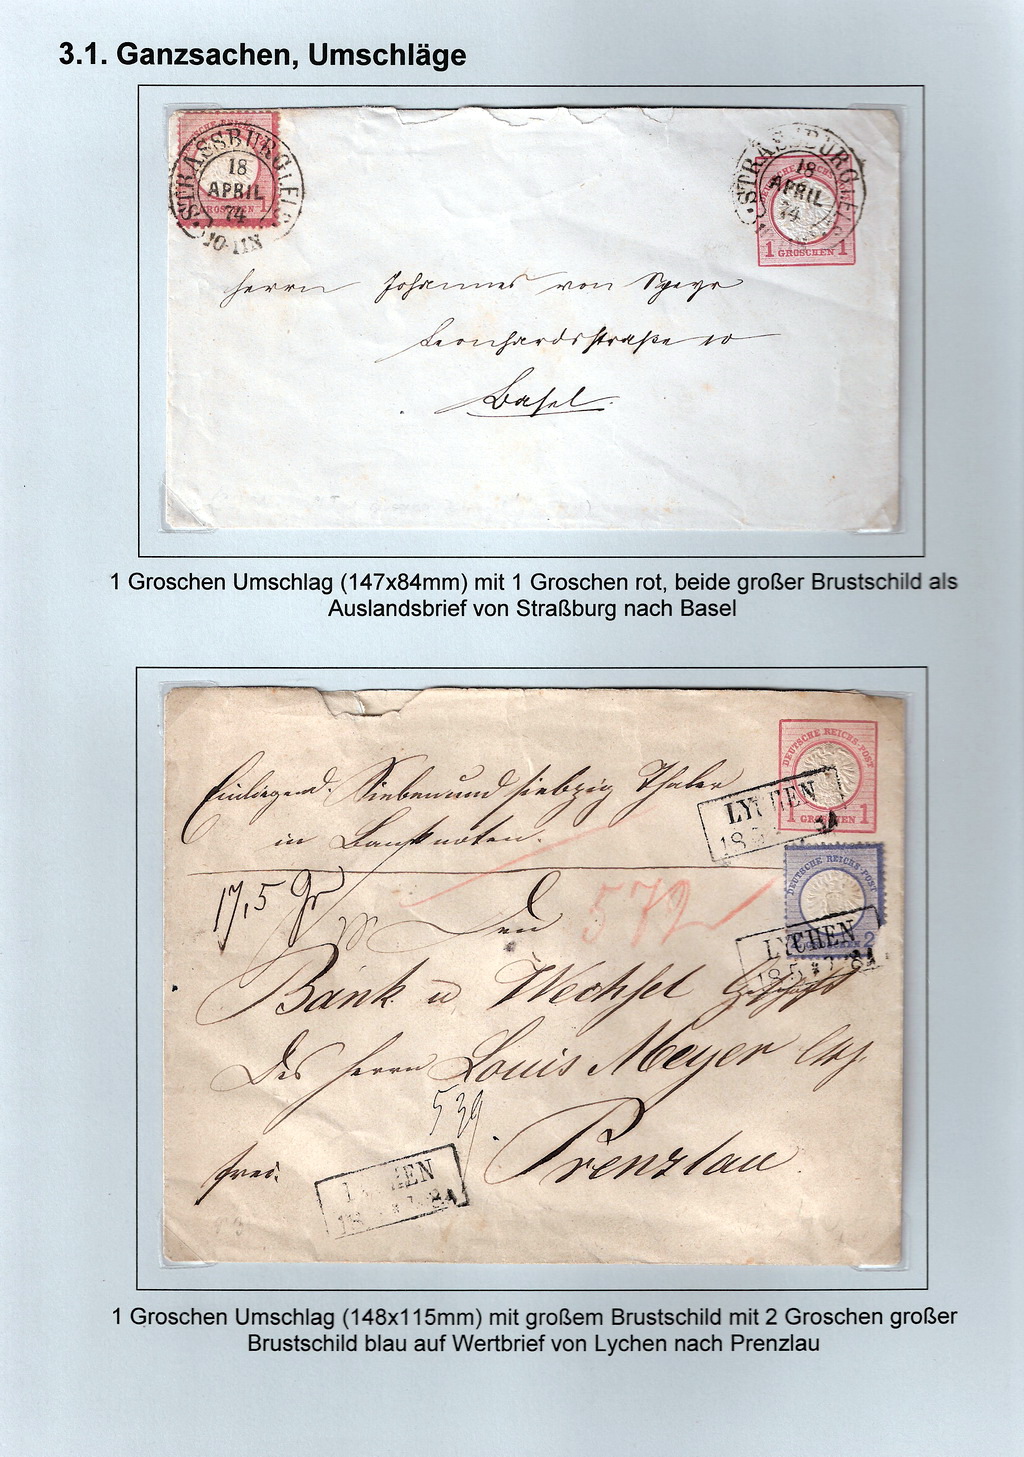 3.1. Ganzsachen, Umschläge
DEUTSCHE REICHS-POST
STRASSBURG I. E.
18
APRIL
74
10-11N
1 GROSCHEN
STRASSBURG I. E.
18
APRIL
74
1 GROSCHEN 1
Herrn Johannes von Speyr
Leonhardsstraße 10
Basel
1 Groschen Umschlag (147x84mm) mit 1 Groschen rot, beide großer Brustschild als
Auslandsbrief von Straßburg nach Basel
DEUTSCHE REICHS-POST
1 GROSCHEN 1
Einliegend: Siebenundsiebzig Thaler
in Banknoten.
LYCHEN
18 5
DEUTSCHE REICHS-POST
2
17,5 Gr
572
Den
LYCHEN
18 5 * 7-8A
Bank u Wechsel Geschäft
Des Herrn Louis Meyer
539
Prenzlau
frei.
LYCHEN
1 Groschen Umschlag (148x115mm) mit großem Brustschild mit 2 Groschen großer
Brustschild blau auf Wertbrief von Lychen nach Prenzlau